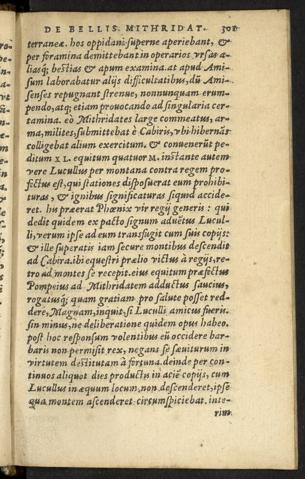 DE BELLIS MITHRIDAT. 301
terraneæ. hos oppidani superne aperiebant, &
per foramina demittebant in operarios ursas a-
liasq; bestias & apum examina. at apud Ami-
sum laborabatur alijs difficultatibus, dũ Ami-
senses repugnant strenue, nonnunquam erum-
pendo, atq; etiam prouocando ad singularia cer-
tamina. eò Mithridates large commeatus, ar-
ma, milites, submittebat è Cabiris, ubi hibernãs
colligebat alium exercitum, & conuenerũt pe-
ditum XL. equitum quatuor M. instante autem
vere Lucullus per montana contra regem pro-
fectus est, qui stationes disposuerat eum prohibi-
turas, & ignibus significaturas siquid accide-
ret. his præerat Phœnix vir regij generis: qui
dedit quidem ex pacto signum aduectus Lucul-
li, verum ipse ad eum transfugit cum suis copijs:
& ille superatis iam secure montibus descendit
ad Cabira. ibi equestri prælio victus à regijs, re-
tro ad montes se recepit. eius equitum præfectus
Pompeius ad Mithridatem adductus saucius,
rogatusq; quam gratiam pro salute posset red-
dere, Magnam, inquit, si Luculli amicus fueris.
sin minus, ne deliberatione quidem opus habeo.
post hoc responsum volentibus eũ occidere bar-
baris non permisit rex, negans se sæuiturum in
virtutem destitutam à fortuna. deinde per con-
tinuos aliquot dies productis in aciẽ copijs, cum
Lucullus in æquum locum, non descenderet, ipse
qua montem ascenderet circumspiciebat. inte-
rim